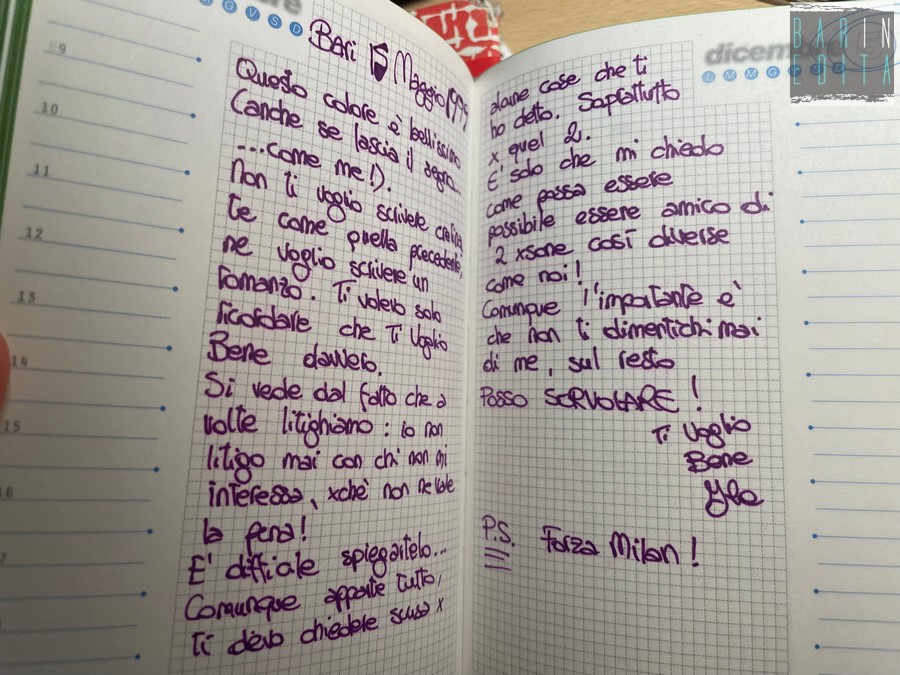 G V S D
Bari 15 Maggio 1999
Questo colore è bellissimo
(anche se lascia il segno...
...come me!).
Non ti voglio scrivere
te come quella precedente,
ne voglio scrivere un
romanzo. Ti volevo solo
ricordare che Ti Voglio
Bene davvero.
Si vede dal fatto che a
volte litighiamo: io non
litigo mai con chi non mi
interessa, xchè non ne vale
la pena!
E' difficile spiegartelo...
Comunque apparte tutto,
Ti devo chiedere scusa x
9
10
11
12
13
14
15
16
dicembre
L M M G V S D
BARIN
EDITA
alcune cose che ti
ho detto. Soprattutto
x quel 2.
E' solo che mi chiedo
come possa essere
possibile essere amico di
2 xsone così diverse
come noi!
Comunque l'importante è
che non ti dimentichi mai
di me, sul resto
Posso SORVOLARE!
Ti Voglio
Bene
P.S. Forza Milan!